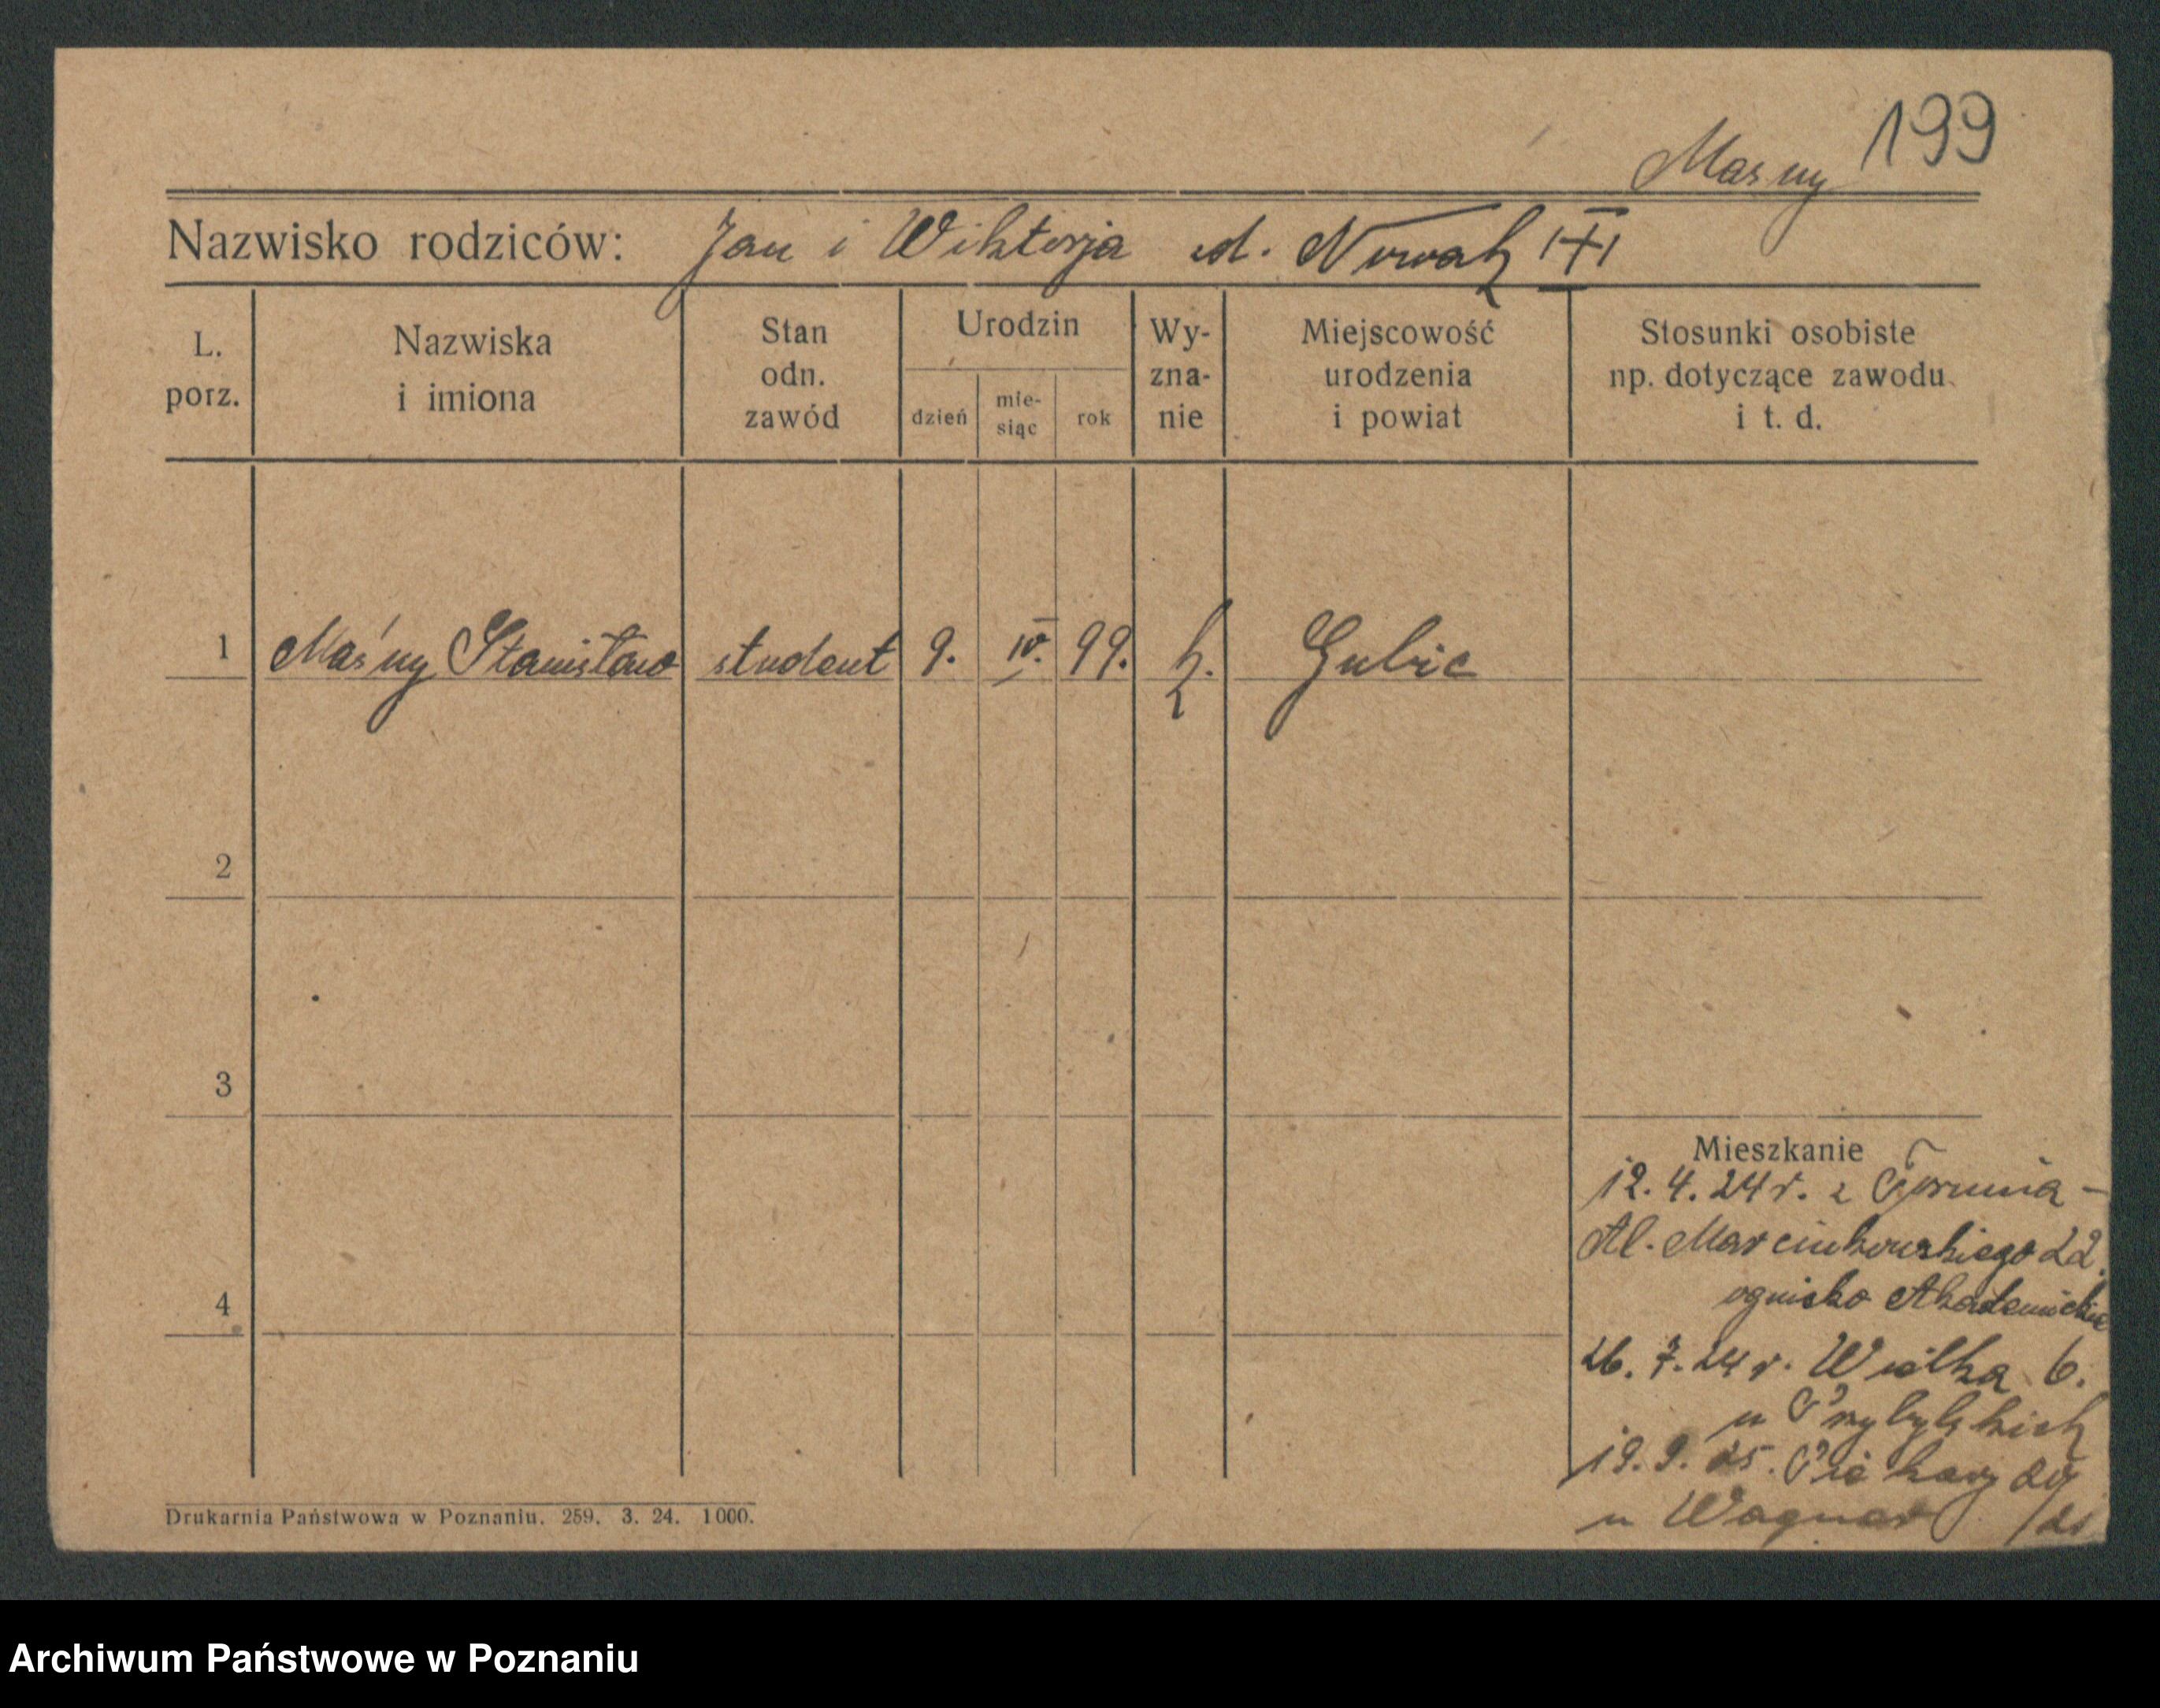 199
Masny
Nazwisko rodziców: Jan i Wiktorja d. Nowak
L. porz.
Nazwiska i imiona
Stan odn. zawód
Urodzin
dzień
mie-siąc
rok
Wy-zna-nie
Miejscowość urodzenia i powiat
Stosunki osobiste np. dotyczące zawodu i t. d.
1 Maśny Stanisław student 9. IV. 99. k. Gubic
2
3
4
Mieszkanie
12.4.24 r. z Torunia -
Al. Marcinkowskiego 22.
ognisko Akademickie
26.7.24 r. Wielka 6.
u Przybylskich
19.9.25. Piekary
u Wagner
Drukarnia Państwowa w Poznaniu. 259. 3. 24. 1000.
Archiwum Państwowe w Poznaniu